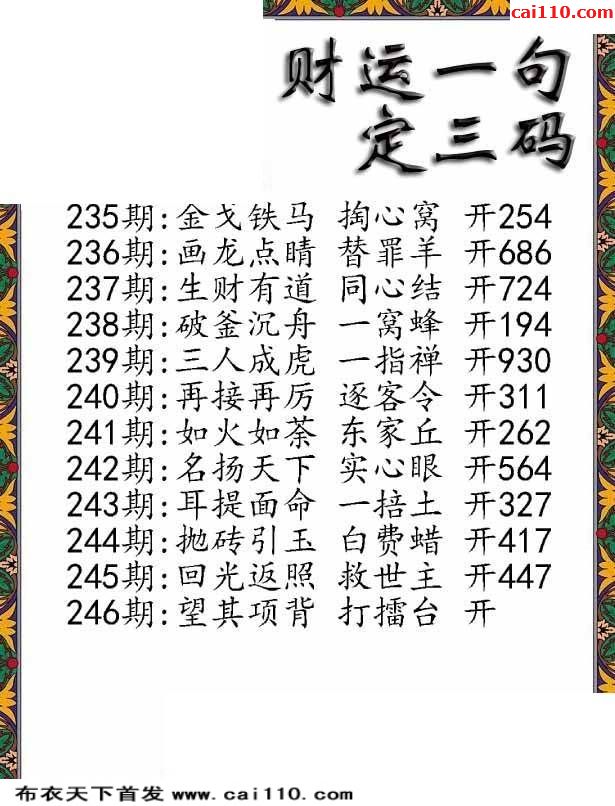 cai110.com
财运一句
定三码
235期:金戈铁马 掏心窝 开254
236期:画龙点睛 替罪羊 开686
237期:生财有道 同心结 开724
238期:破釜沉舟 一窝蜂 开194
239期:三人成虎 一指禅 开930
240期:再接再厉 逐客令 开311
241期:如火如荼 东家丘 开262
242期:名扬天下 实心眼 开564
243期:耳提面命 一掊土 开327
244期:抛砖引玉 白费蜡 开417
245期:回光返照 救世主 开447
246期:望其项背 打擂台 开
布衣天下首发 www.cai110.com